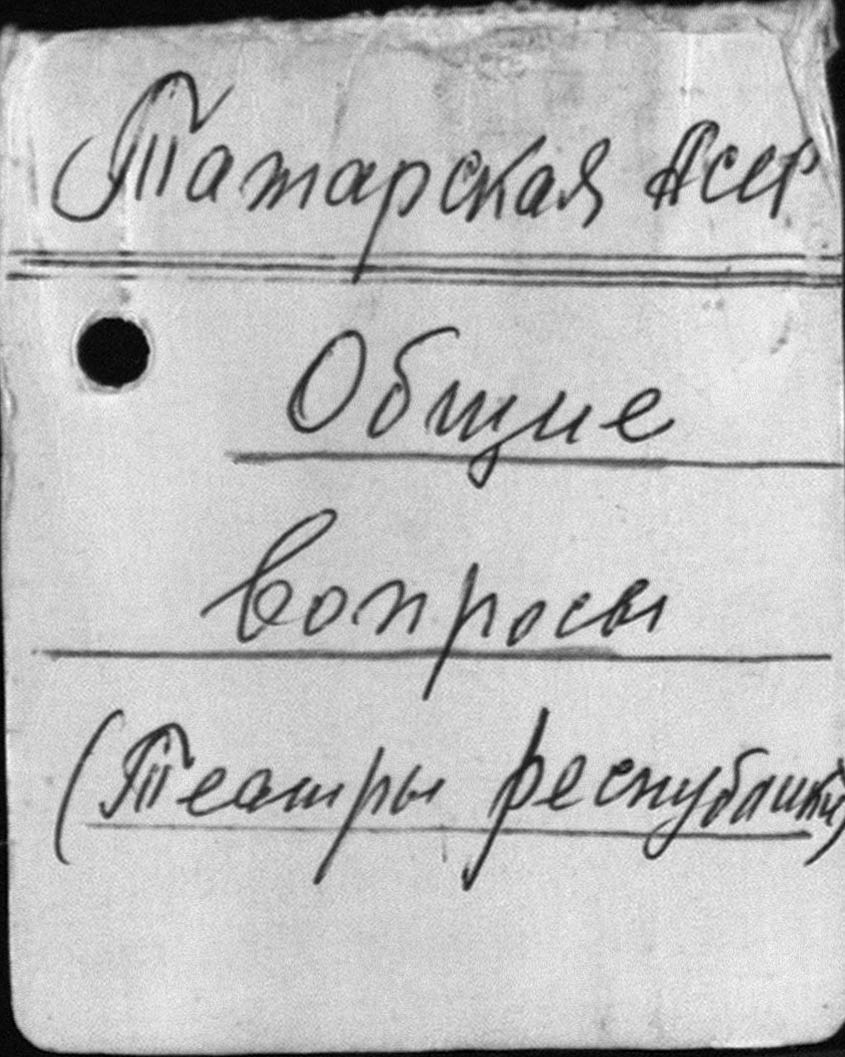 Татарская АССР
Общие
вопросы
(Театры республики)